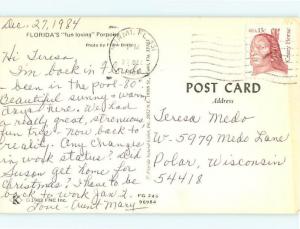 Dec. 27, 1984
FLORIDA'S "fun loving" Porpoise
Photo by
Hi Teresa
I'm back in Florida
been in the pool-80°
Beautiful sunny & warm
days here. We had
a really great, strenuous
fun tree - now back to
reality. Any changes
in work status? Did
Susan get home for
Christmas? I have to be
back to work Jan 2.
Love - Aunt Mary
K ©1982 FNC Inc.
FG 245
96984
USA 13c
Crazy Horse
POST CARD
Address
Teresa Medo
W-5979 Medo Lane
Polar, Wisconsin
54418